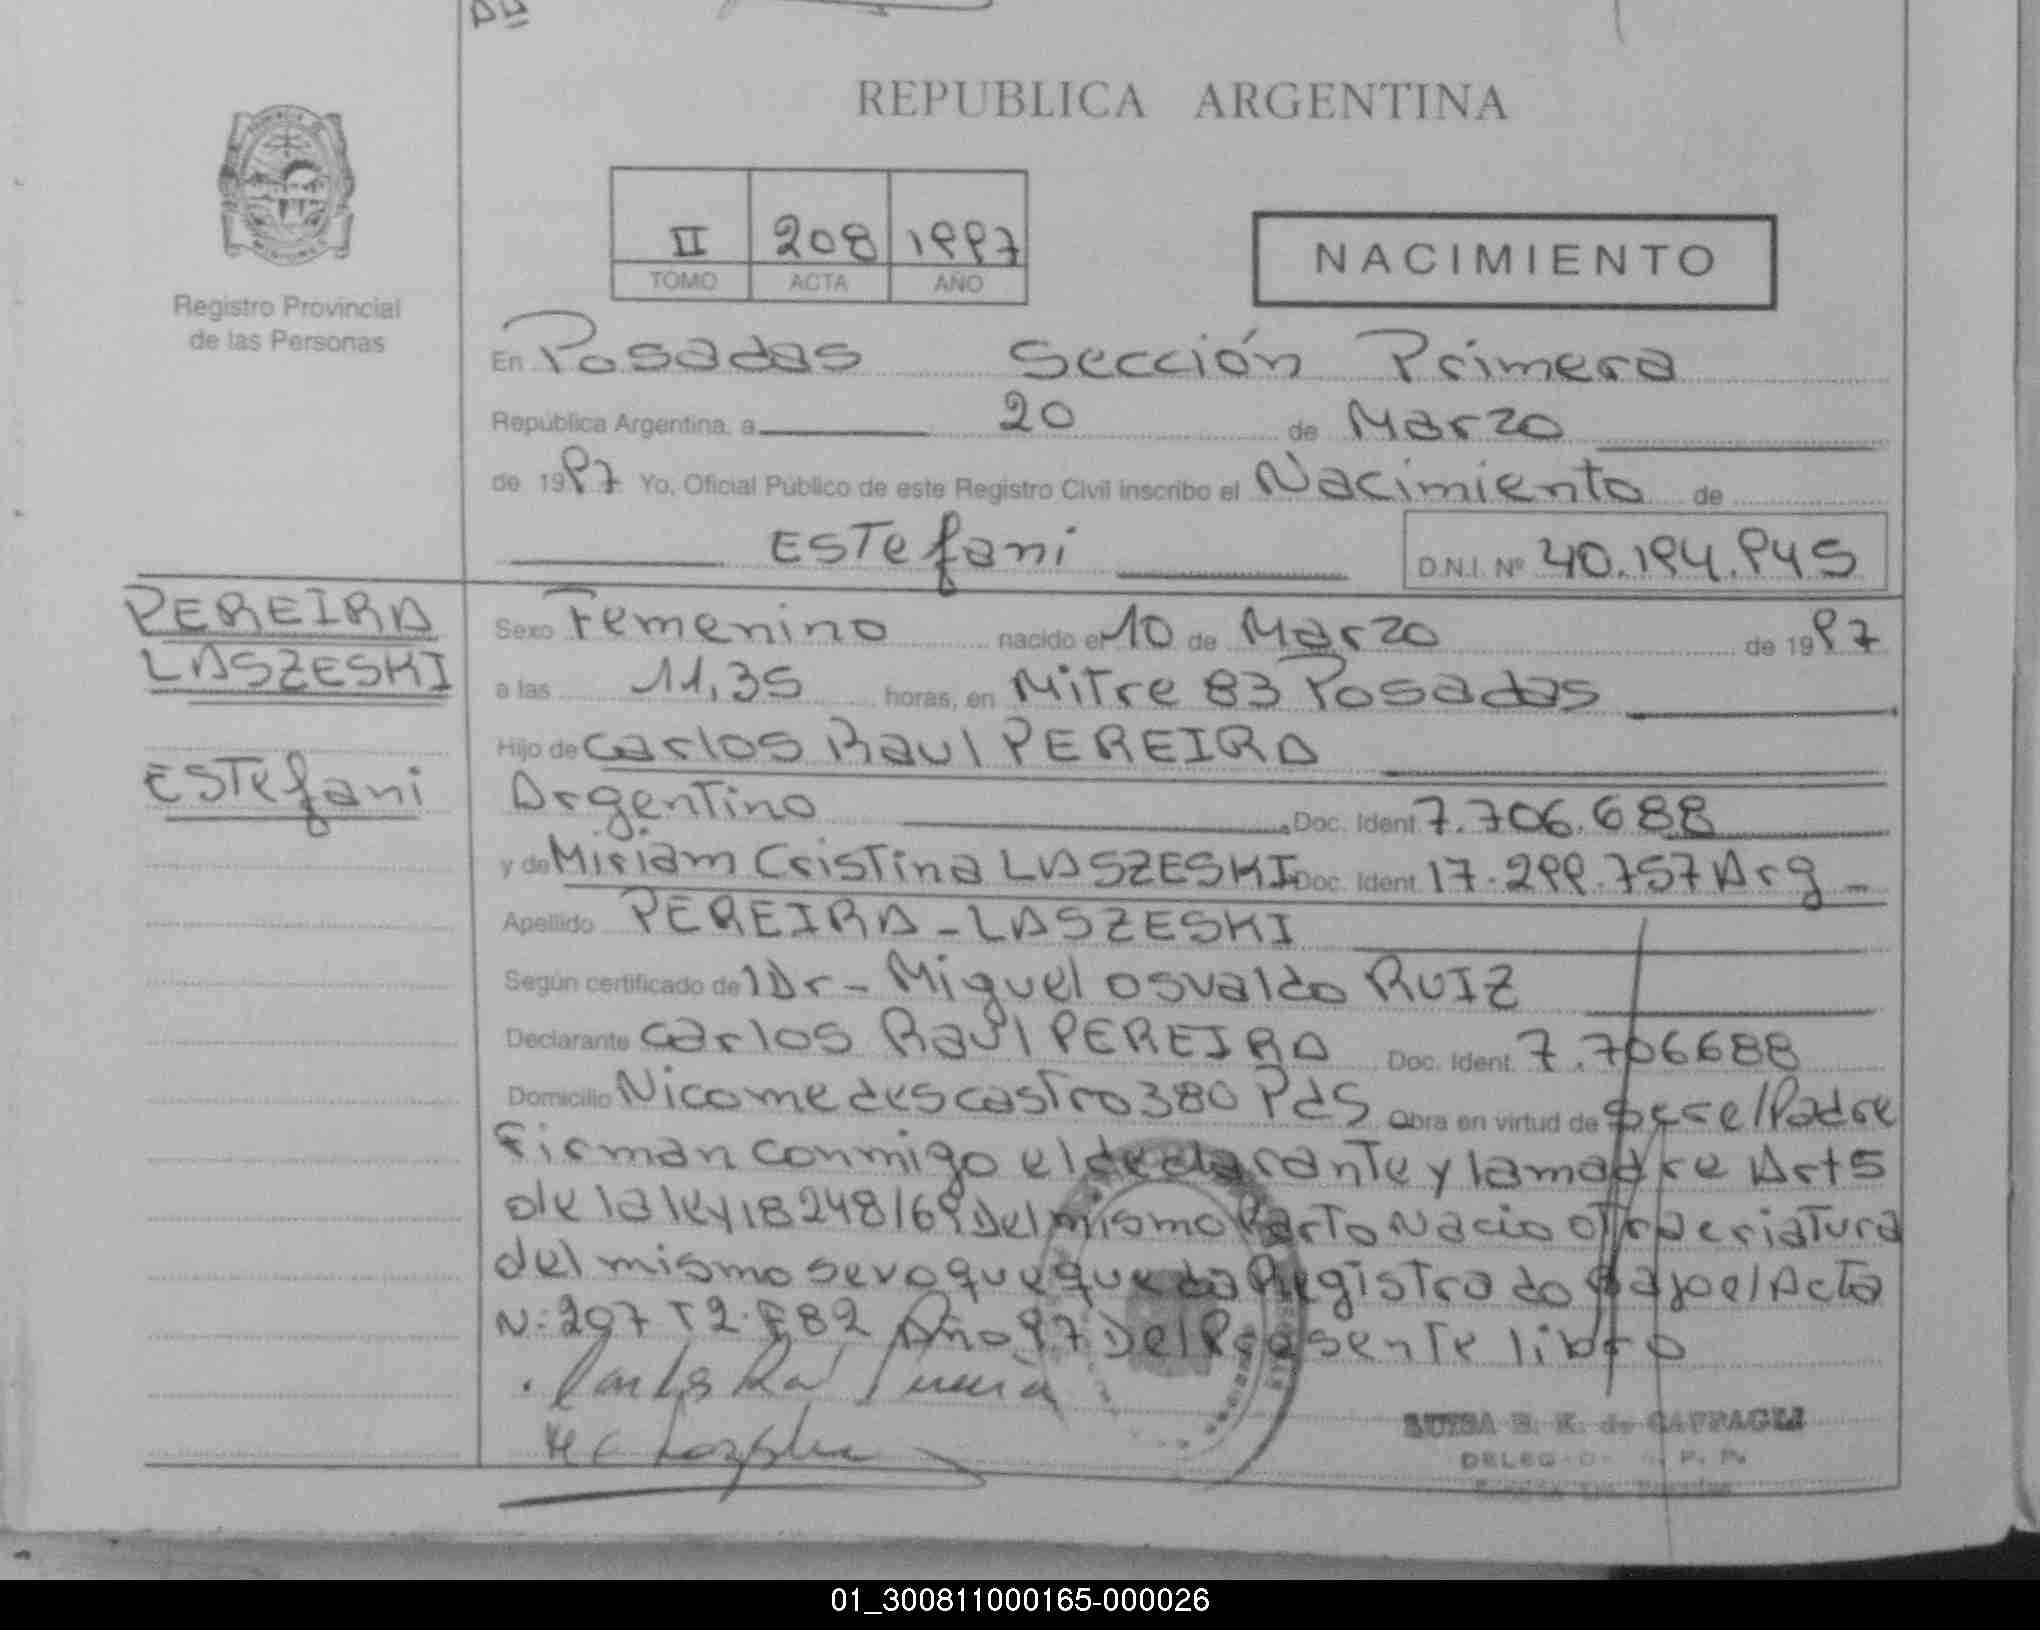 REPUBLICA ARGENTINA
II 208 1997
TOMO ACTA AÑO
NACIMIENTO
Registro Provincial
de las Personas
En Posadas Sección Primera
República Argentina, a 20 de Marzo
de 1997 Yo, Oficial Público de este Registro Civil inscribo el Nacimiento de
Estefani D.N.I. Nº 40.194.945
PEREIRA
LASZESKI
Estefani
Sexo Femenino nacido el 10 de Marzo de 1997
a las 11,35 horas, en Mitre 83 Posadas
Hijo de Carlos Raul PEREIRA
Argentino Doc. Ident. 7.706.688
y de Miriam Cristina LASZESKI Doc. Ident. 17.299.757 Arg
Apellido PEREIRA - LASZESKI
Según certificado del Dr - Miguel Osvaldo RUIZ
Declarante Carlos Raul PEREIRA Doc. Ident. 7.706688
Domicilio Nicomedes Castro 380 PdS Obra en virtud de ser el Padre
Firman conmigo el declarante y la madre Art 5
de la ley 18248/69 Del mismo Parto Nacio otra criatura
del mismo sexo que queda Registrado Bajo el Acta
N: 207 T2. F82 Año 97 Del Presente libro
de CAPPAGLI
01_300811000165-000026